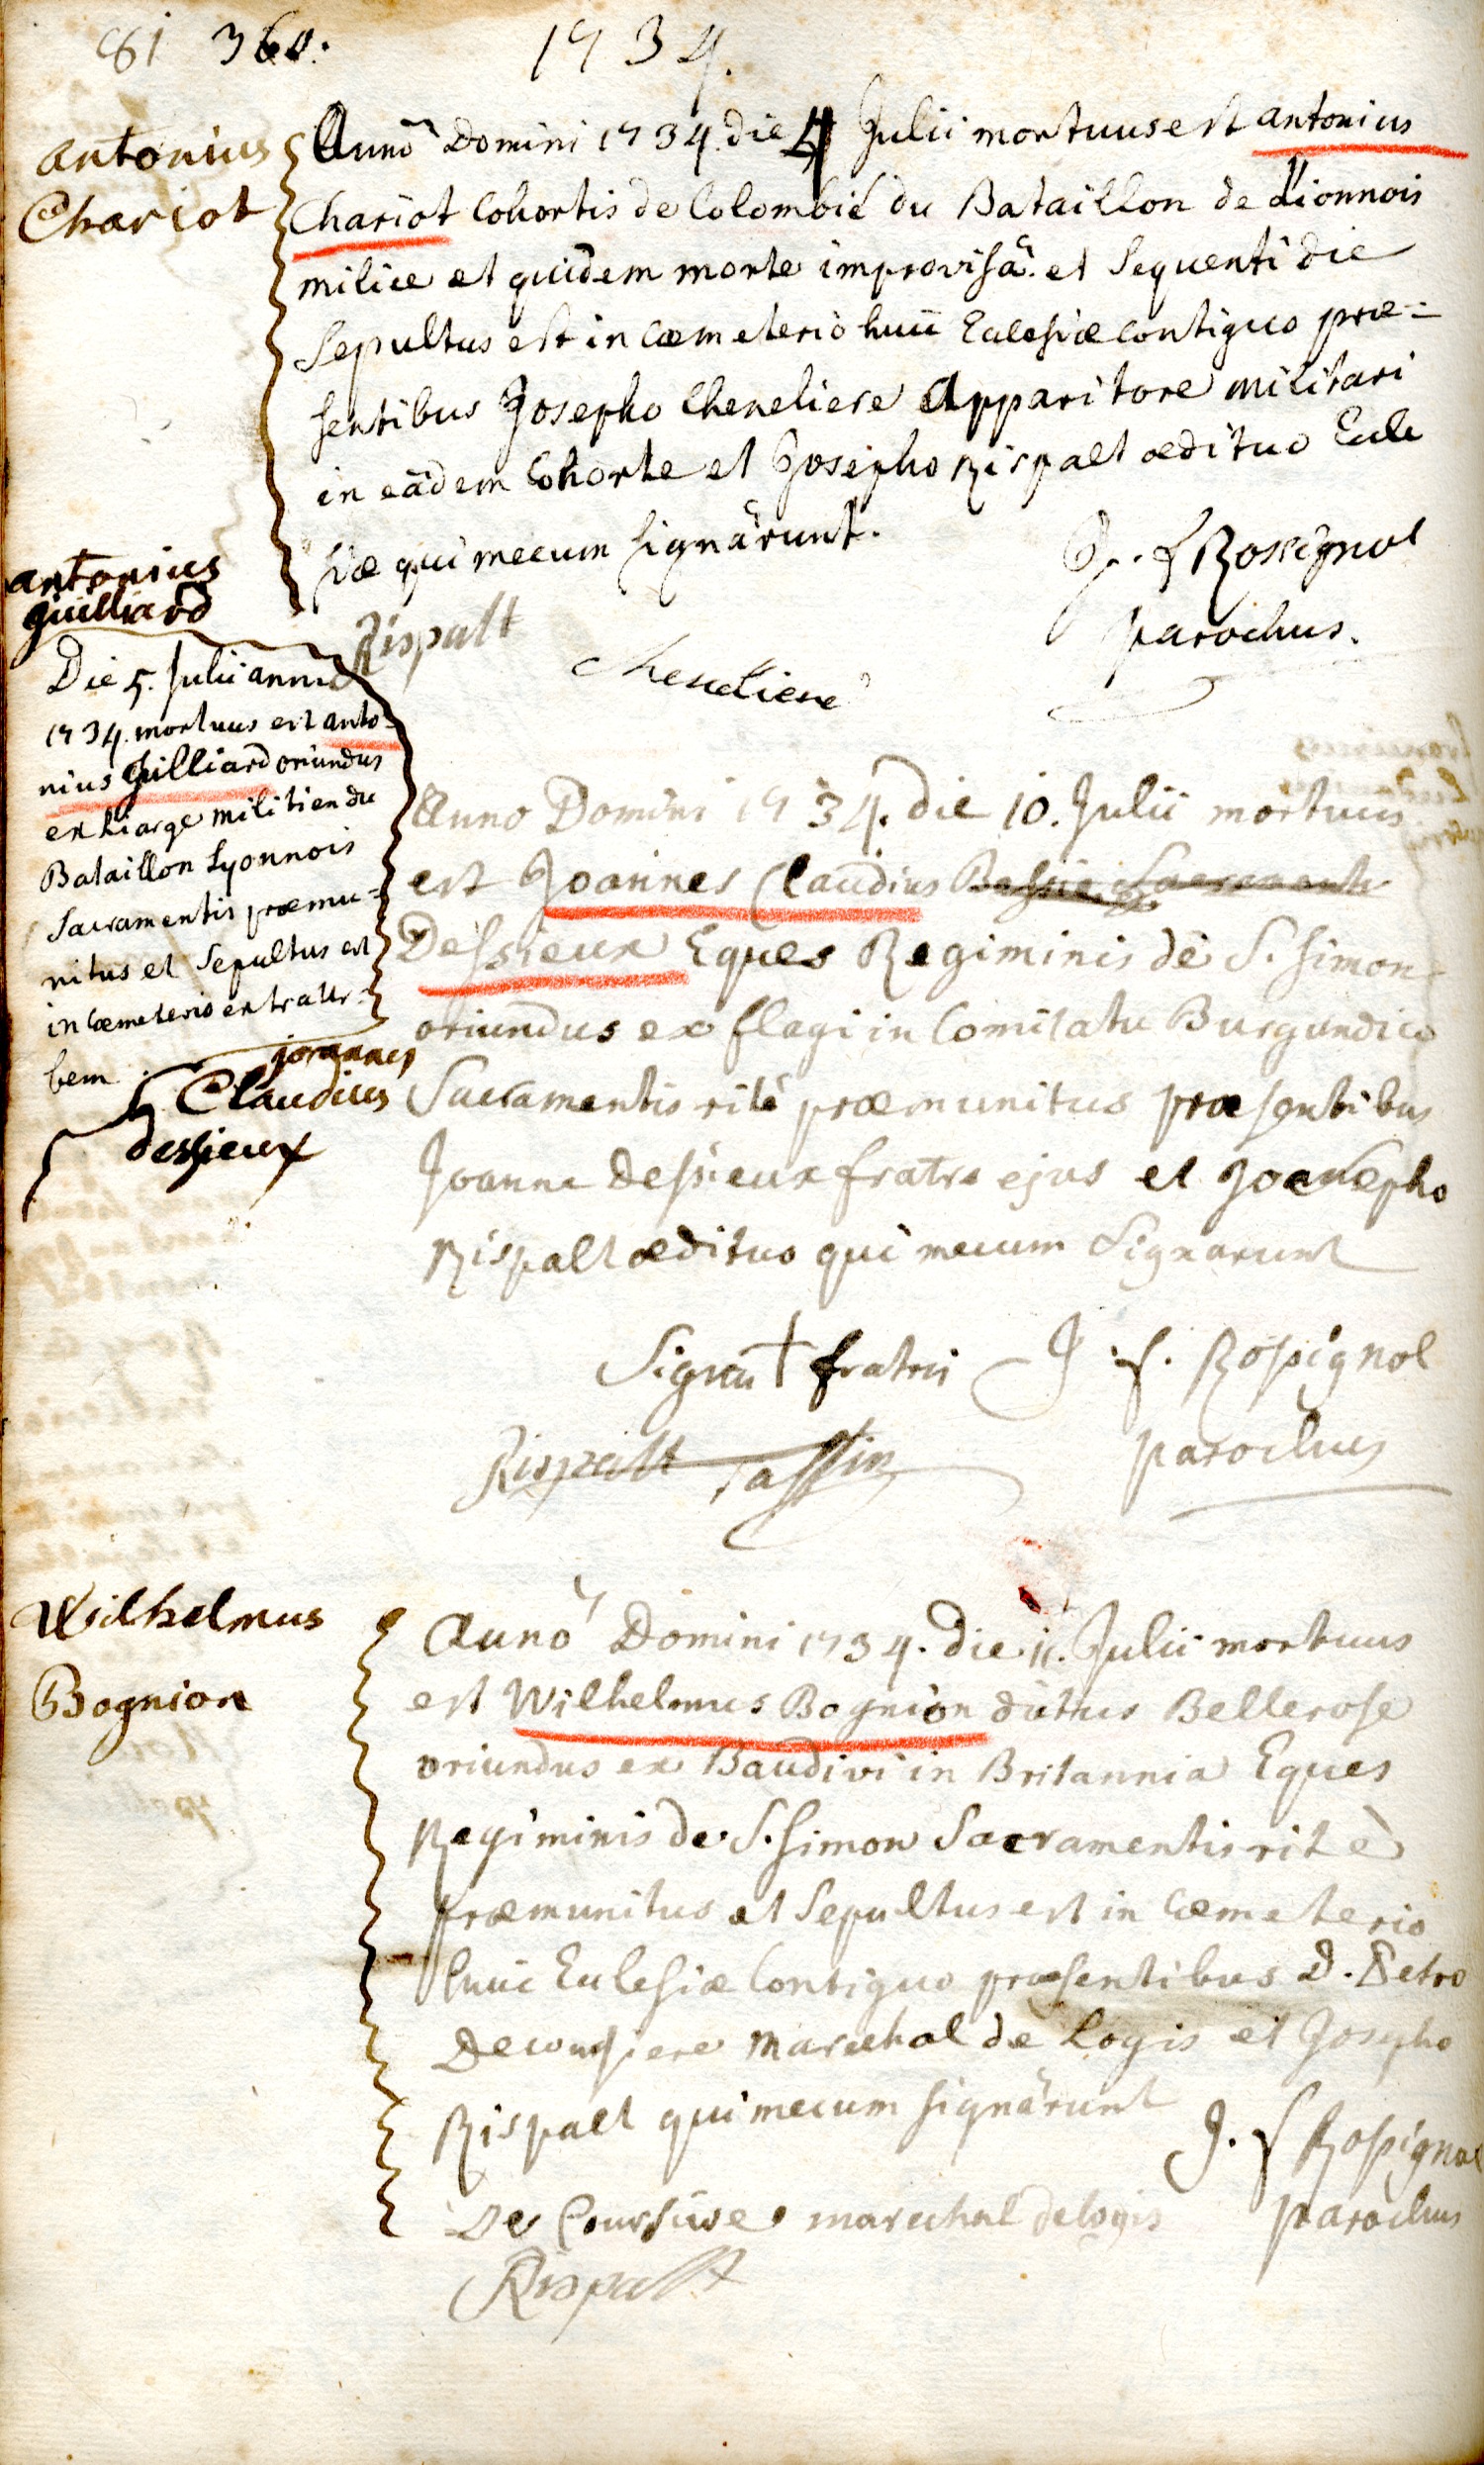 81 360.
1734.
antonius
Chariot
Anno Domini 1734. die 4 Julii mortuus est antonius
Chariot Cohortis de Colombié du Bataillon de Lionnois
milice et quidem morte improvisâ. et Sequenti die
Sepultus est in Cœmeterio huic Eclesiæ Contiguo præ=
sentibus Josepho Cheneliere Apparitore militari
in eâdem Cohorte et Josepho Rispalt ædituo Ecle
siæ qui mecum signârunt.
J. f Rossignol
parochus.
Rispalt
Cheneliere
antonius
guilliard
Die 5. Julii anni
1734. mortuus est anto-
nius Guilliard oriundus
ex Liarge militien du
Bataillon Lyonnois
Sacramentis præmu=
nitus et Sepultus est
in Cœmeterio extra Ur=
bem
joannes
Claudius
dessieux
Anno Domini 1734. die 10. Julii mortuus
est Joannes Claudius
Dessieux Eques Regiminis de S. Simon
oriundus ex flagi in Comitatu Burgundico
Sacramentis ritè præmunitus præsentibus
Joanne Dessieux fratre ejus et Josepho
Rispalt ædituo qui mecum Signarunt
Signu † fratris J. f. Rossignol
parochus
Rispalt Tassin
Wilhelmus
Bognion
Anno Domini 1734. die 11. Julii mortuus
est Wilhelmus Bognion dictus Bellerose
oriundus ex Baudivi in Britannia Eques
Regiminis de S. Simon Sacramentis ritè
præmunitus et Sepultus est in Cœmeterio
huic Eclesiæ Contiguo præsentibus D. Petro
Marechal de Logis et Josepho
Rispalt qui mecum signârunt
J. f Rossignol
parochus
De marechal delogis
Rispalt